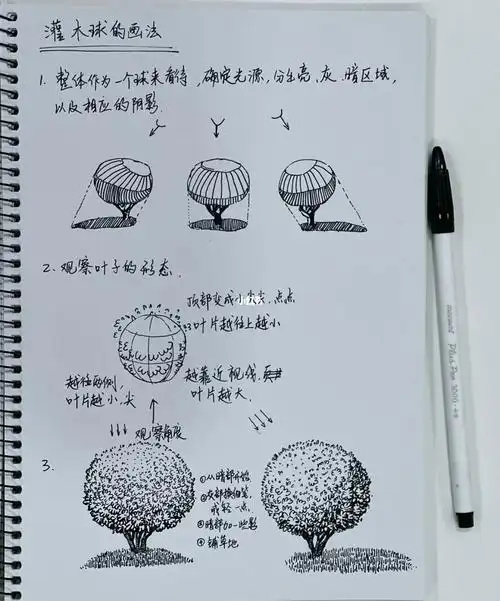 灌木球的画法
1. 整体作为一个球来看待，确定光源，分出亮、灰、暗区域，
以及相应的阴影.
2. 观察叶子的形态.
顶部变成小尖尖.点点
叶片越往上越小
越往两侧，
叶片越小.尖
越靠近视线，
叶片越大.
观察角度
3.
①从暗部开始
②灰部换细笔，
或轻一点.
③暗部加一些影
④铺草地